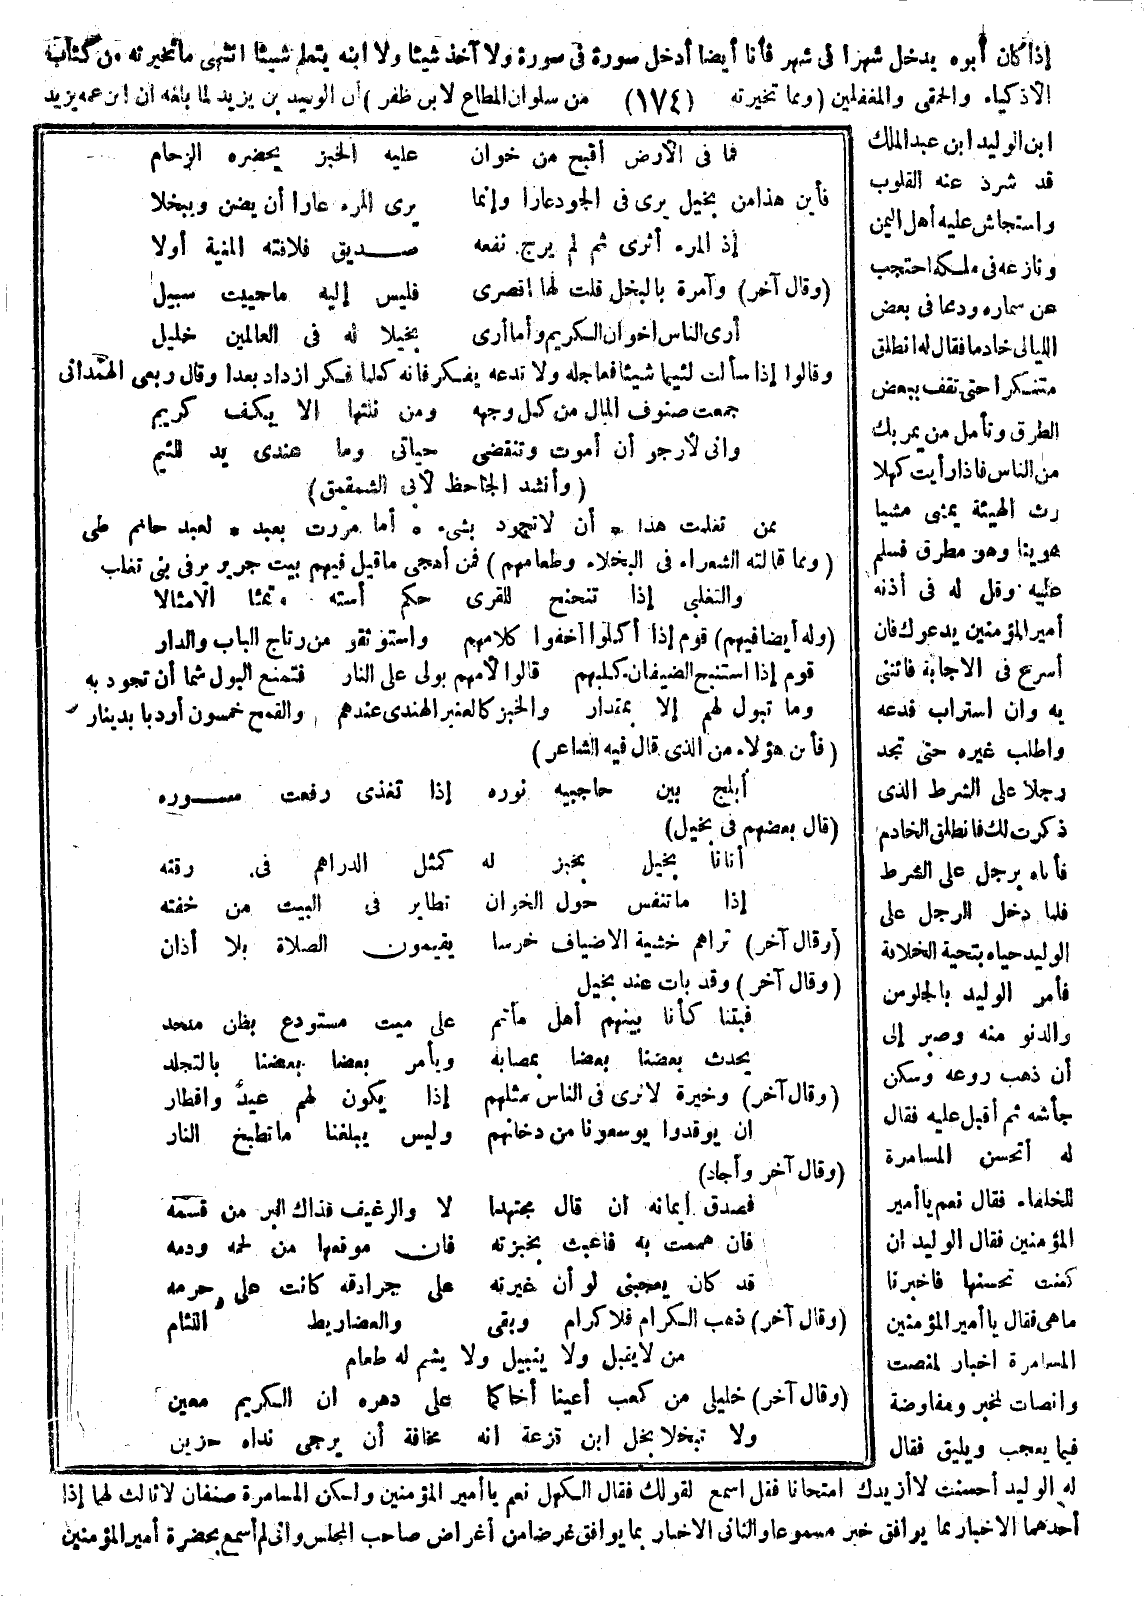 إذا كان أبوه يدخل شهرا فى شهر فأنا أيضا أدخل سورة فى سورة ولا آخذ شيئا ولا ابنه يتعلم شيئا انتهى ما تخيرته من كتاب
الأذكياء والحمقى والمغفلين (ومما تخيرته (١٧٤) من سلوان المطاع لابن ظفر) أن الوليد بن يزيد لما بلغه أن ابن عمه يزيد
ابن الوليد ابن عبد الملك
قد شرذ عنه القلوب
واستجاش عليه أهل اليمن
ونازعه فى ملكه احتجب
عن سماره ودعا فى بعض
الليالى خادما فقال له انطلق
متنكرا حتى تقف ببعض
الطرق وتأمل من يمر بك
من الناس فاذا رأيت كهلا
رث الهيئة يمشى مشيا
هوينا وهو مطرق فسلم
عليه وقل له فى أذنه
أمير المؤمنين يدعوك فان
أسرع فى الاجابة فائتنى
به وان استراب فدعه
واطلب غيره حتى تجد
رجلا على الشرط الذى
ذكرت لك فانطلق الخادم
فأتاه برجل على الشرط
فلما دخل الرجل على
الوليد حياه بتحية الخلافة
فأمر الوليد بالجلوس
والدنو منه وصبر إلى
أن ذهب روعه وسكن
جأشه ثم أقبل عليه فقال
له أتحسن المسامرة
للخلفاء فقال نعم يا أمير
المؤمنين فقال الوليد ان
كنت تحسنها فاخبرنا
ماهى فقال يا أمير المؤمنين
المسامرة اخبار لمنصت
وانصات لمخبر ومفاوضة
فيما يعجب ويليق فقال
فما فى الأرض أقبح من خوان عليه الخبز يحضره الزحام
فأين هذا من بخيل يرى فى الجود عارا وإنما يرى المرء عارا أن يضن ويبخلا
إذ المرء أثرى ثم لم يرج نفعه صديق فلاقته المنية أولا
(وقال آخر) وآمرة بالبخل قلت لها اقصرى فليس إليه ما حييت سبيل
أرى الناس اخوان الكريم وأما أرى بخيلا له فى العالمين خليل
وقالوا إذا سألت لئيما شيئا فعاجله ولا تدعه يفكر فانه كلما فكر ازداد بعدا وقال ربعى الهمدانى
جمعت صنوف المال من كل وجهه ومن نلتها الا بكف كريم
وانى لأرجو أن أموت وتنقضى حياتى وما عندى يد للئيم
(وأنشد الجاحظ لأبى الشمقمق)
من تغلت هذا * أن لا تجود بشىء * أما مررت بعبد * لعبد حاتم طى
(ومما قالته الشعراء فى البخلاء وطعامهم) فمن أهجى ما قيل فيهم بيت جرير فى بنى تغلب
والتغلبى إذا تنحنح للقرى حكم أسته وتمثا الأمثالا
(وله أيضا فيهم) قوم إذا أكلوا أخفوا كلامهم واستوثقو من رتاج الباب والدار
قوم إذا استنبح الضيفان كلبهم قالوا لأمهم بولى على النار فتمنع البول شحا أن تجود به
وما تبول لهم إلا بمقدار والخبز كالعنبر الهندى عندهم والقمح خمسون أردبا بدينار
(فأين هؤلاء من الذى قال فيه الشاعر)
أبلج بين حاجبيه نوره إذا تغذى رفعت ستوره
(قال بعضهم فى بخيل)
أتانا بخيل بخبز له كمثل الدراهم فى رقته
إذا ما تنفس حول الخوان تطاير فى البيت من خفته
(وقال آخر) تراهم خشية الاضياف خرسا يقيمون الصلاة بلا أذان
(وقال آخر) وقد بات عند بخيل
فبتنا كأنا بينهم أهل مأتم على ميت مستودع بطن ملحد
يحدث بعضنا بعضا بمصابه ويأمر بعضا بعضنا بالتجلد
(وقال آخر) وخيرة لا ترى فى الناس مثلهم إذا يكون لهم عيد وافطار
ان يوقدوا يوسعونا من دخانهم وليس يبلغنا ما تطبخ النار
(وقال آخر وأجاد)
فصدق أيمانه ان قال مجتهدا لا والرغيف فذاك البر من قسمه
فان هممت به فاعبث بخبزته فان موقعها من لحمه ودمه
قد كان يعجبنى لو أن غيرته على جرادقه كانت على حرمه
(وقال آخر) ذهب الكرام فلا كرام وبقى والعضاريط اللئام
من لا يقبل ولا ينيل ولا يشم له طعام
(وقال آخر) خليلى من كعب أعينا أخاكما على دهره ان الكريم معين
ولا تبخلا بخل ابن قزعة انه مخافة أن يرجى نداه حزين
له الوليد أحسنت لا أزيدك امتحانا فقل اسمع لقولك فقال الكهل نعم يا أمير المؤمنين ولكن المسامرة صنفان لا ثالث لهما إذا
أحدهما الاخبار بما يوافق خبر مسموعا والثانى الاخبار بما يوافق غرضا من أغراض صاحب المجلس وانى لم أسمع بحضرة أمير المؤمنين